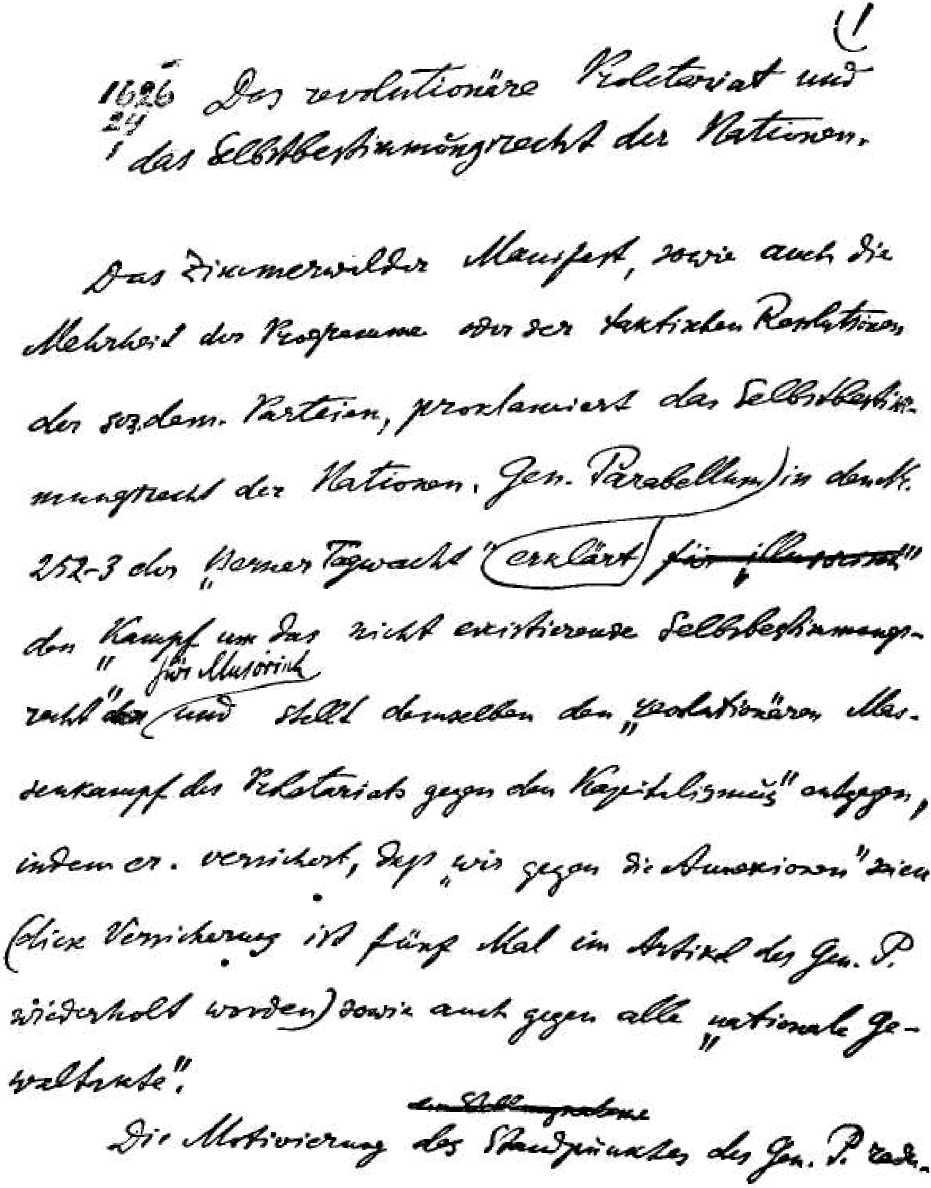 1)
1626 Das revolutionäre Proletariat und
24
1 das Selbstbestimmungsrecht der Nationen.
Das Zimmerwalder Manifest, sowie auch die
Mehrheit der Programme oder der taktischen Resolutionen
der soz.dem. Parteien, proklamiert das Selbstbestim-
mungsrecht der Nationen. Gen. Parabellum in den №.
252-3 der „Berner Tagwacht" erklärt für „illusorisch"
den „Kampf um das nicht existierende Selbstbestimmungs-
für illusorisch
recht" und stellt demselben den „revolutionären Mas-
senkampf des Proletariats gegen den Kapitalismus" entgegen,
indem er versichert, daß „wir gegen die Annexionen" seien
(diese Versicherung ist fünf Mal im Artikel des Gen. P.
wiederholt worden) sowie auch gegen alle „nationale Ge-
waltakte".
Die Motivierung des Standpunktes des Gen. P. redu-